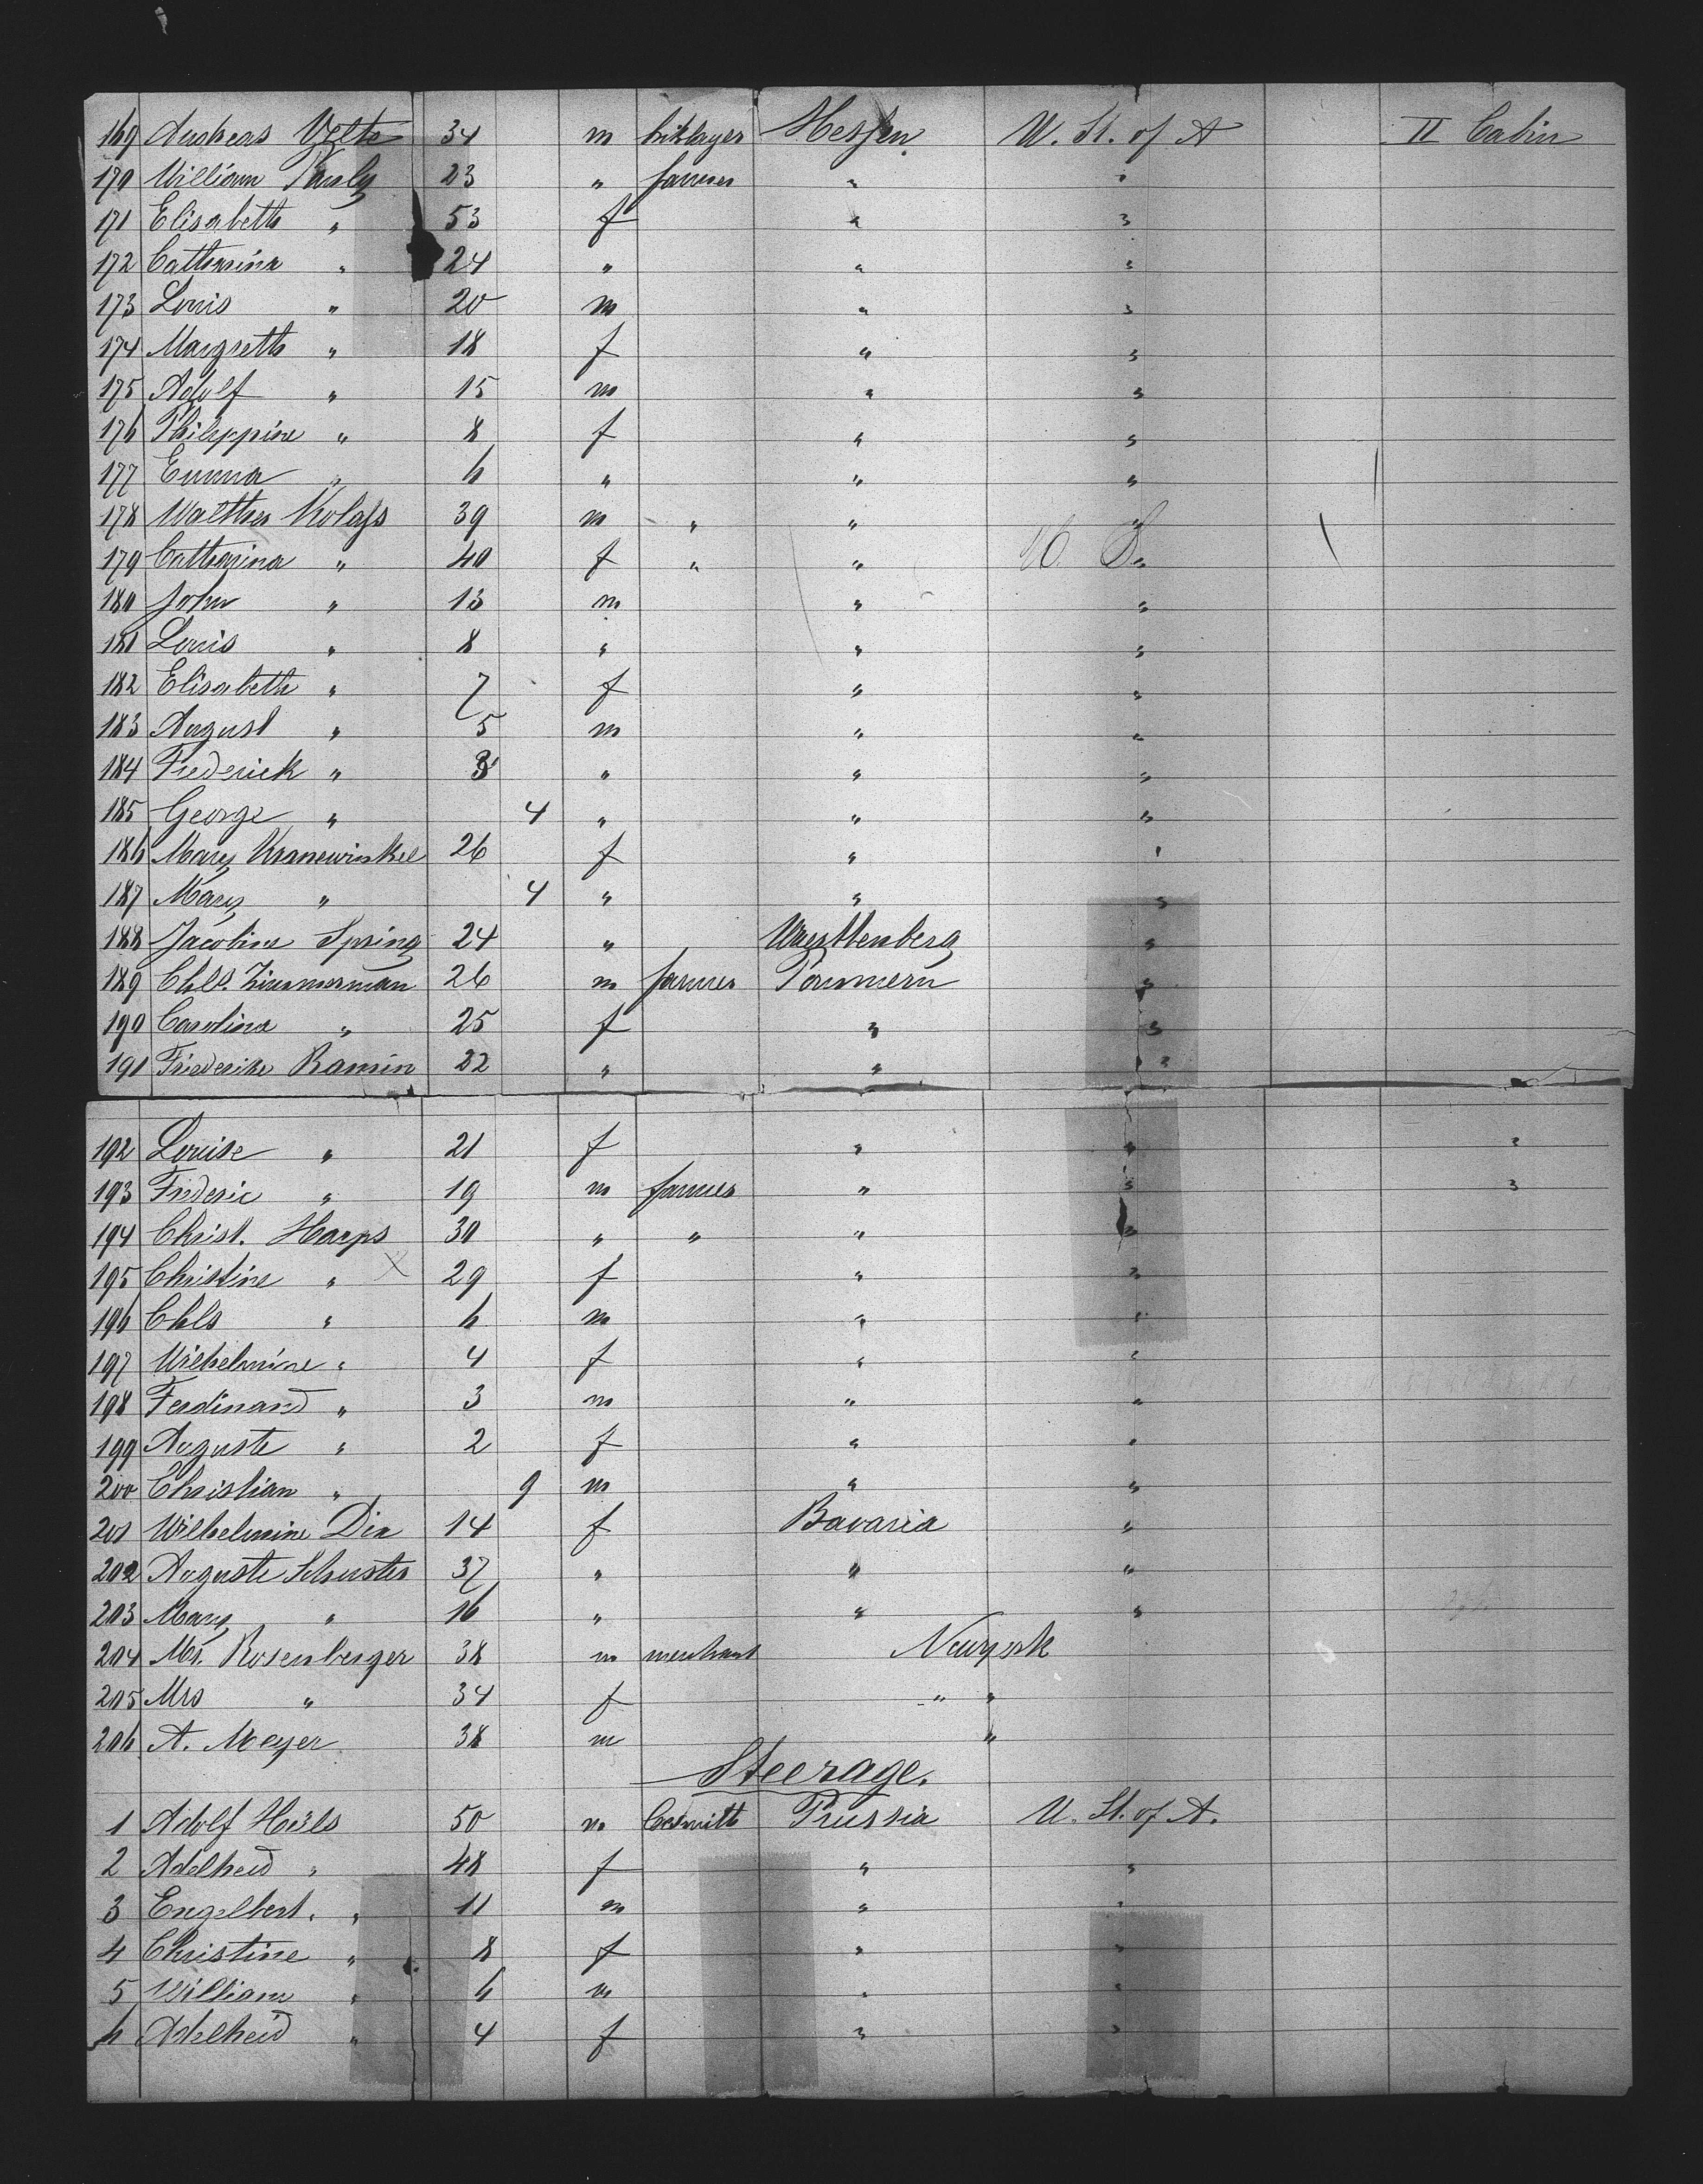 169 Andreas Velte 34 m briklayer Hessen U. St. of A II Cabin
170 William Pauly 23 " farmer " "
171 Elisabeth " 53 f " "
172 Catharina " 24 " " "
173 Louis " 20 m " "
174 Margreth " 18 f " "
175 Adolf " 15 m " "
176 Philippine " 8 f " "
177 Emma " 6 " " "
178 Walther Kolass 39 m " " "
179 Catharina " 40 f " " "
180 John " 13 m " "
181 Louis " 8 " " "
182 Elisabeth " 7 f " "
183 August " 5 m " "
184 Frederick " 3 " " "
185 George " 4 " " "
186 Mary Kranewinkel 26 f " "
187 Mary " 4 " " "
188 Jacobine Spring 24 " Wuerttenberg "
189 Chls. Zimmerman 26 m farmer Pommern "
190 Carolina " 25 f " "
191 Friederike Ramin 22 " " "
192 Louise " 21 f " " "
193 Frederic " 19 m farmer " " "
194 Christ. Harps 30 " " " "
195 Christine " X 29 f " "
196 Chls " 6 m " "
197 Wilhelmine " 4 f " "
198 Ferdinand " 3 m " "
199 Auguste " 2 f " "
200 Christian " 9 m " "
201 Wilhelmine Dix 14 f Bavaria "
202 Auguste Schuster 37 " " "
203 Mary " 16 " " "
204 Mr. Rosenberger 38 m merchant Newyork
205 Mrs " 34 f " "
206 A. Meyer 38 m "
Steerage.
1 Adolf Heils 50 m Prussia U. St. of A.
2 Adelheid " 48 f " "
3 Engelbert " 11 m " "
4 Christine " 8 f " "
5 William " 6 m " "
6 Adelheid " 4 f " "